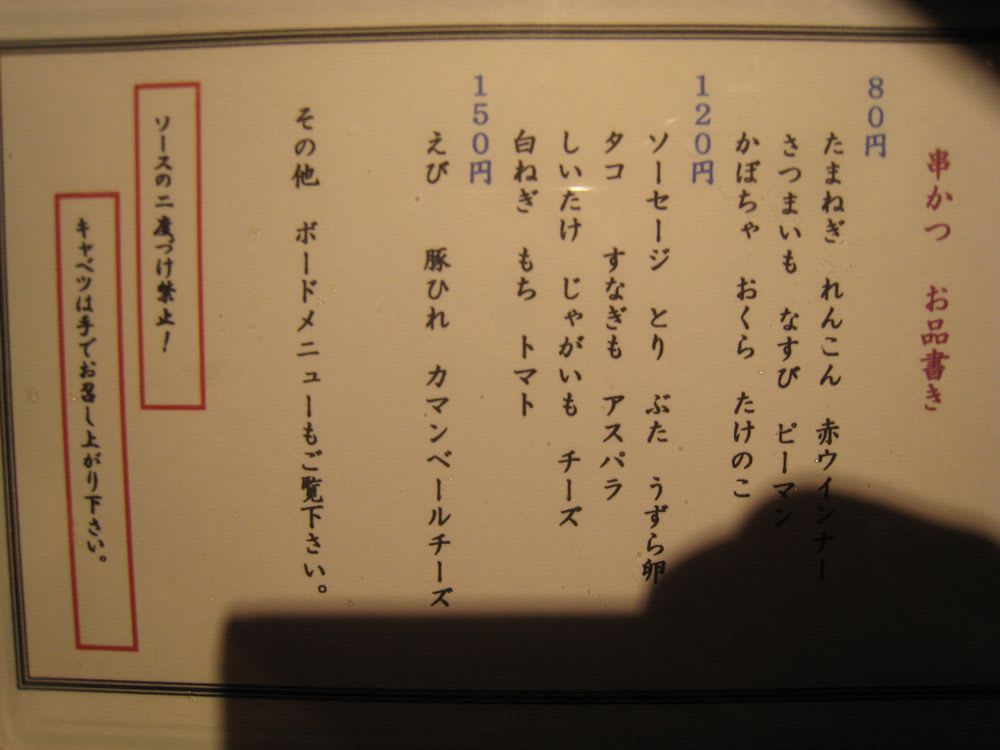 串かつ お品書き
80円
たまねぎ れんこん 赤ウインナー
さつまいも なすび ピーマン
かぼちゃ おくら たけのこ
120円
ソーセージ とり ぶた うずら卵
タコ すなぎも アスパラ
しいたけ じゃがいも チーズ
白ねぎ もち トマト
150円
えび 豚ひれ カマンベールチーズ
その他 ボードメニューもご覧下さい。
ソースの二度づけ禁止!
キャベツは手でお召し上がり下さい。